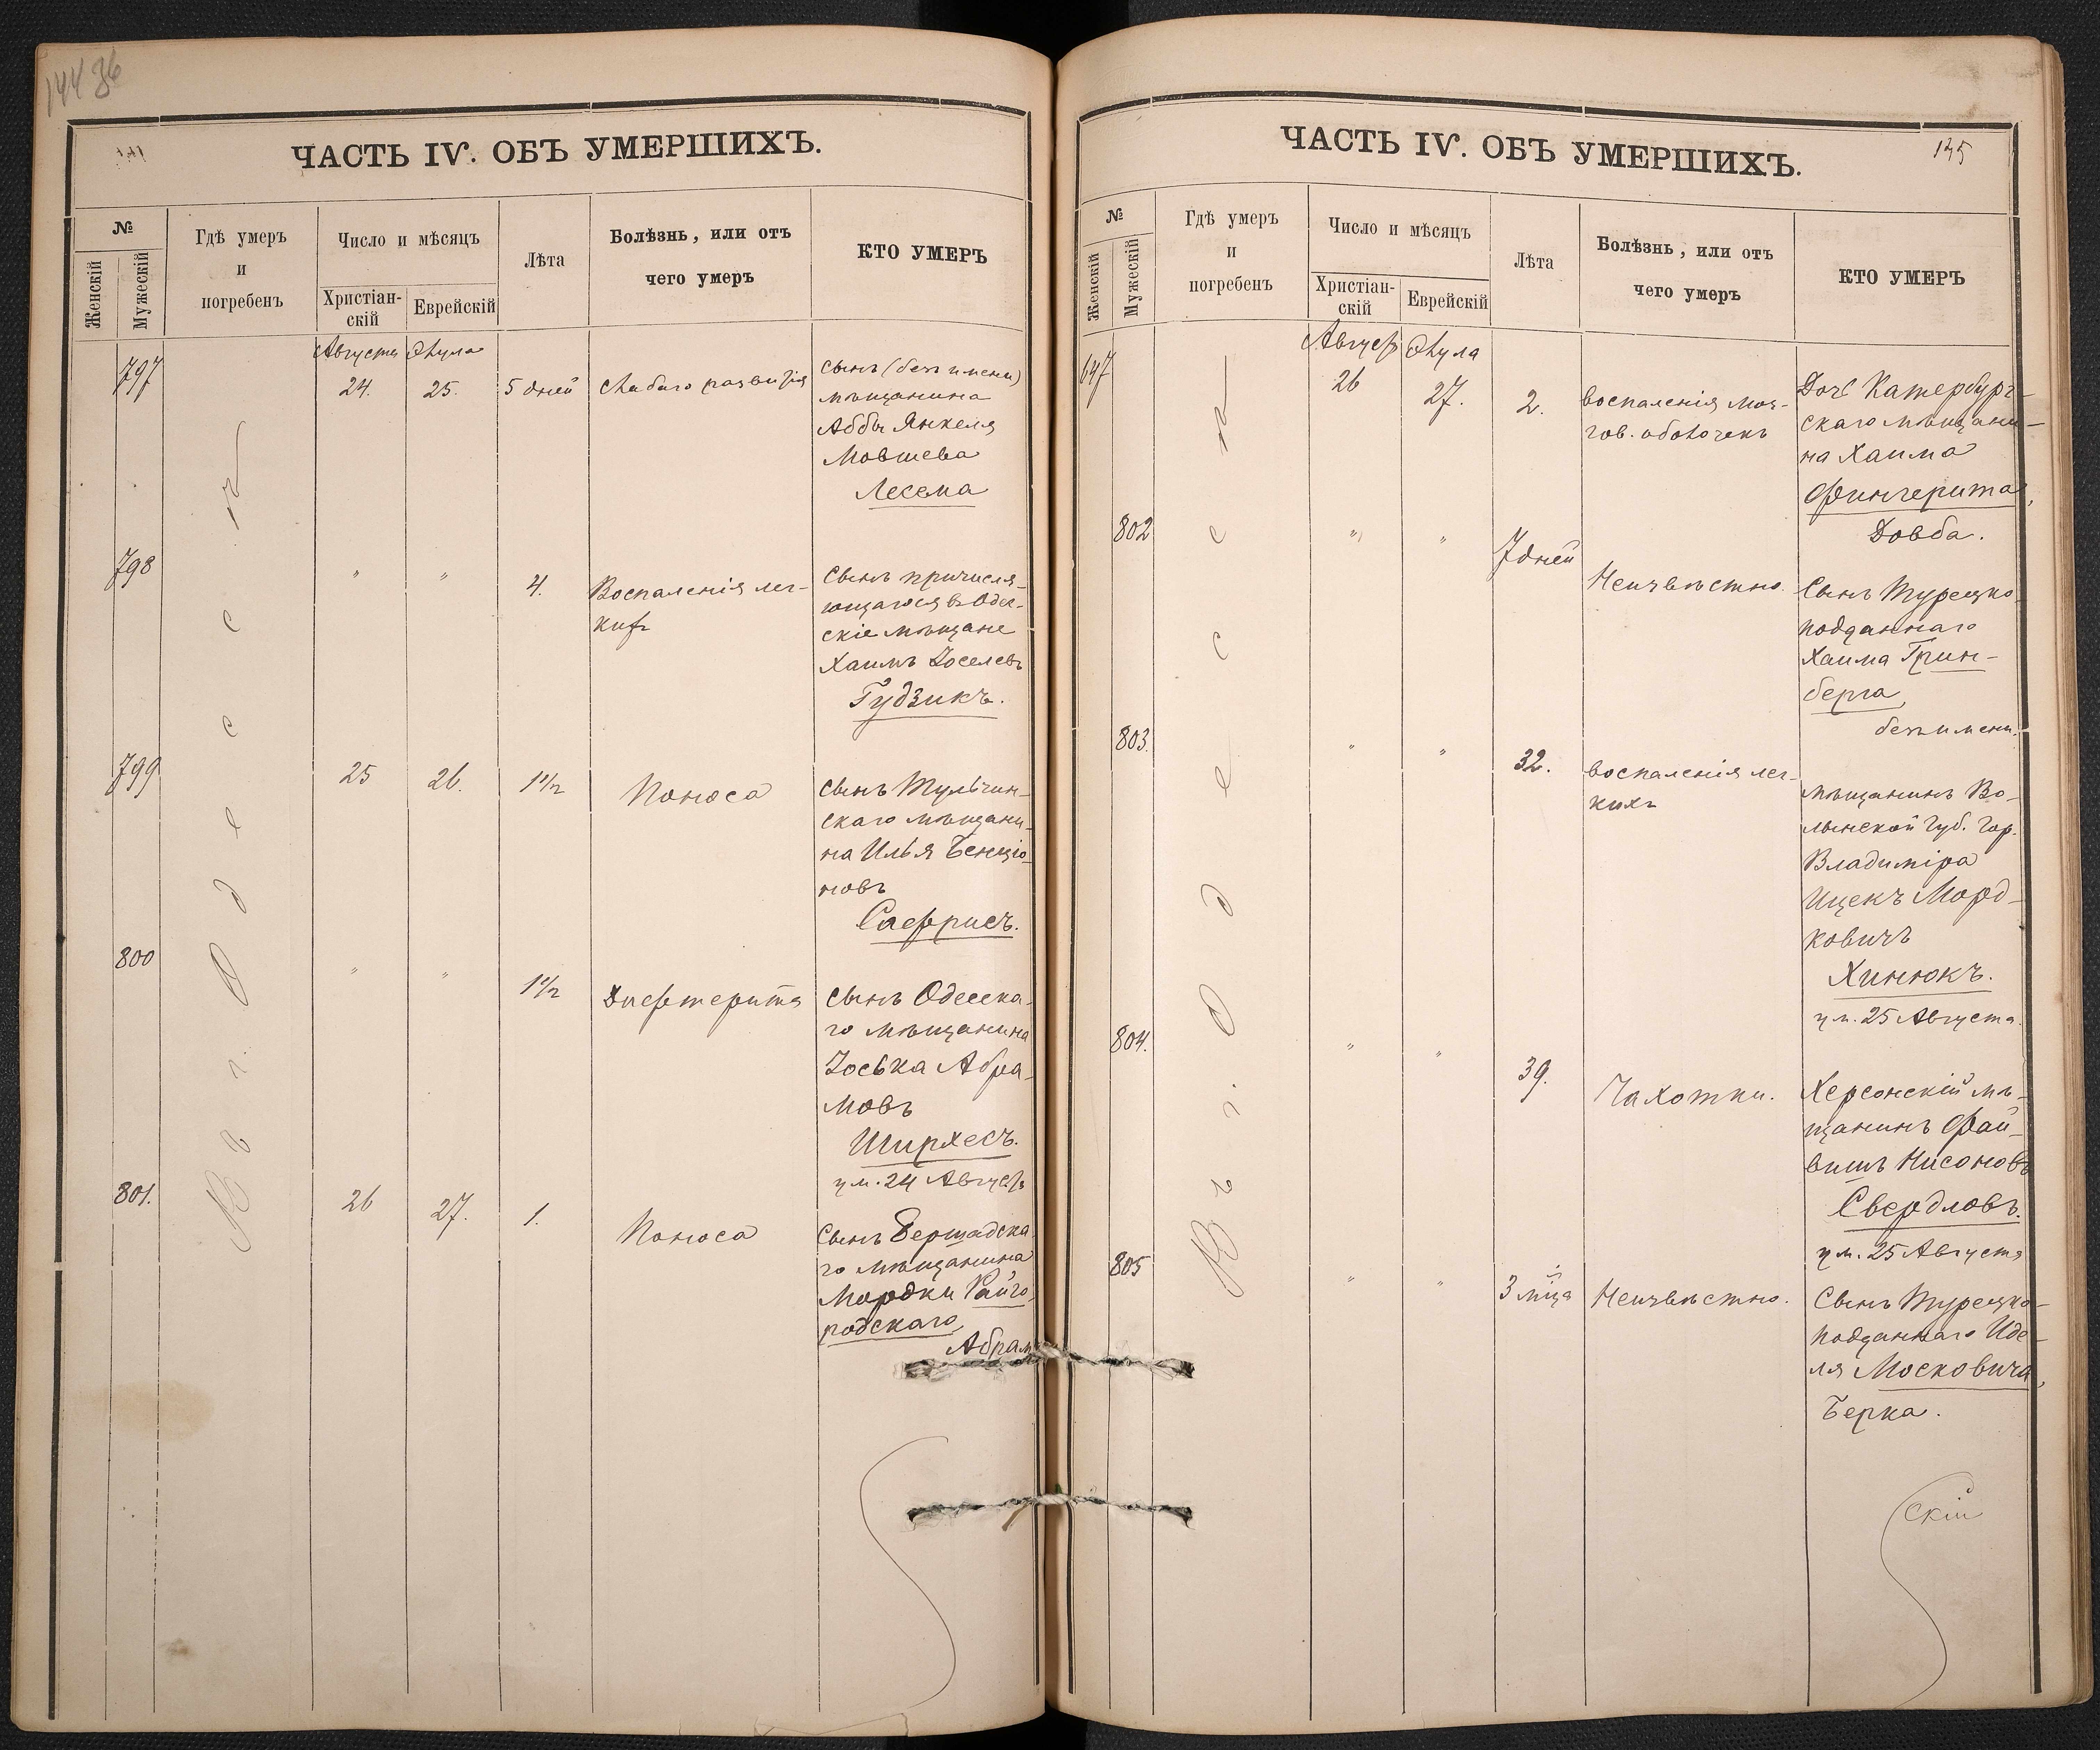 144 36
ЧАСТЬ IV. ОБЪ УМЕРШИХЪ.
№
Женскій
Мужескій
Гдѣ умеръ
и
погребенъ
Число и мѣсяцъ
Христіан-
скій
Еврейскій
Лѣта
Болѣзнь, или отъ
чего умеръ
КТО УМЕРЪ
Въ г. Одессѣ
Августа Элула
797 24. 25. 5 дней слабаго развитія
сынъ (безъ имени)
мѣщанина
Аббы Янкеля
Мовшева
Лесема
798 " " 4. Воспаленія лег-
кихъ
Сынъ причисля-
ющагося въ Одес-
скіе мѣщане
Хаимъ Іоселевъ
Гудзикъ.
799 25 26. 1 1/2 Поноса
сынъ Тульчин-
скаго мѣщани-
на Илья Бенціо-
новъ
Сафрисъ.
800 " " 1 1/2 Дифтерита
сынъ Одесска-
го мѣщанина
Іоська Абра-
мовъ
Ширхесъ.
ум. 24 Август
801. 26 27. 1. Поноса
Сынъ Бершадска-
го мѣщанина
Мордки Райго-
родскаго,
Абрам
ЧАСТЬ IV. ОБЪ УМЕРШИХЪ.
145
№
Женскій
Мужескій
Гдѣ умеръ
и
погребенъ
Число и мѣсяцъ
Христіан-
скій
Еврейскій
Лѣта
Болѣзнь, или отъ
чего умеръ
КТО УМЕРЪ
Въ г. Одессѣ
Август Элула
647 26 27. 2. воспаленія моз-
гов. оболочекъ
Дочь Катербург-
скаго мѣщани-
на Хаима
Фингерита,
Довба.
802 " " 7 дней Неизвѣстно.
Сынъ Турецко-
подданнаго
Хаима Грин-
берга,
безъ имени.
803. " " 32. воспаленія лег-
кихъ
мѣщанинъ Во-
лынской губ. гор.
Владиміра
Ицекъ Морд-
ковичъ
Хинюкъ.
ум. 25 Августа.
804. " " 39. Чахотки.
Херсонскій мѣ-
щанинъ Фай-
вишъ Нисоновъ
Свердловъ.
ум. 25 Августа
805 " " 3 мѣца Неизвѣстно.
Сынъ Турецко-
подданнаго Иде-
ля Московича,
Берка.
скій